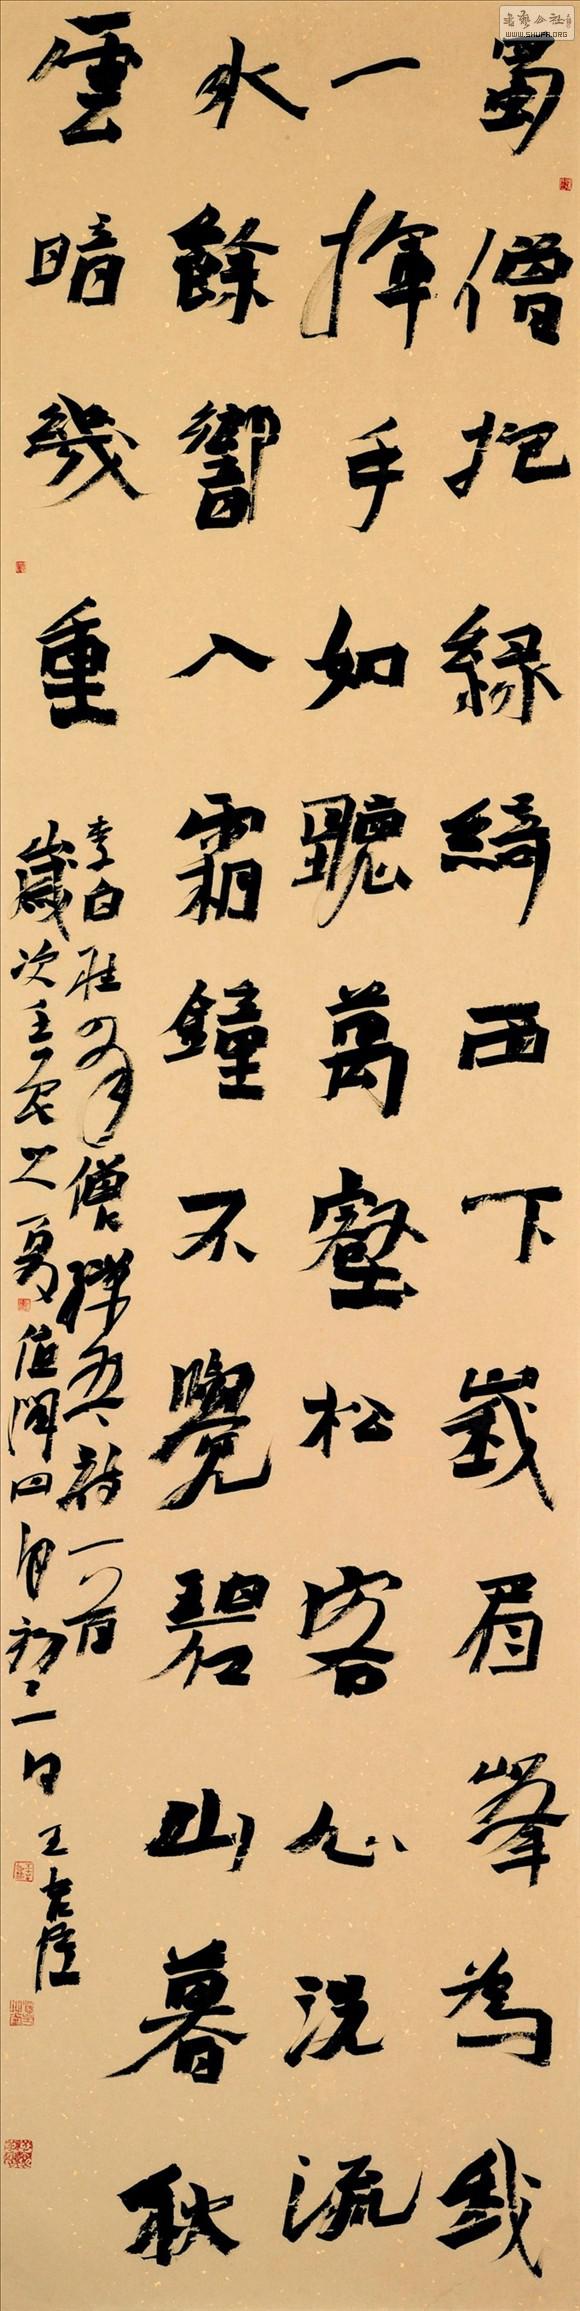 蜀僧抱綠綺西下峨眉峯為我
一揮手如聽萬壑松客心洗流
水餘響入霜鐘不覺碧山暮秋
雲暗幾重
李白聽蜀僧彈琴詩一首
歲次壬辰之夏值閏四月初日王
书艺公社
WWW.SHUFA.ORG